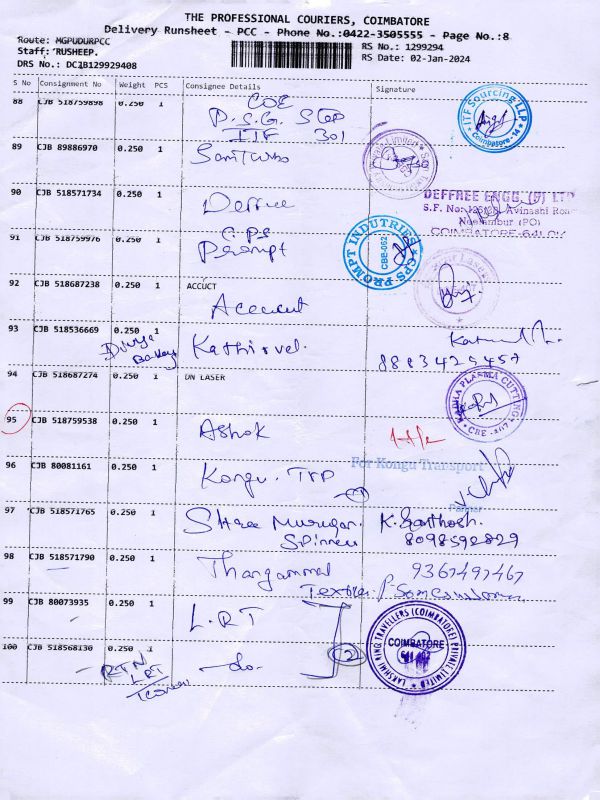 THE PROFESSIONAL COURIERS, COIMBATORE
Delivery Runsheet - PCC - Phone No.:0422-3505555 - Page No.:8
Route: MGPUDURPCC
Staff: RUSHEEP.
DRS No.: DCIB129929408
RS No.: 1299294
RS Date: 02-Jan-2024
S No Consignment No Weight PCS Consignee Details Signature
88 CJB 518759898 0.250 1 COE
P.S.G. STEP
IIF 301
ITF Sourcing LLP
Coimbatore-14
89 CJB 89886970 0.250 1 SamTurbo
90 CJB 518571734 0.250 1 Deffree
DEFFREE ENGG. (P) LTD
Avinashi Road
Neelambur (PO)
91 CJB 518759976 0.250 1 C.P.S
Prompt
CPS PROMPT INDUTRIES
CBE-062
92 CJB 518687238 0.250 1 ACCUCT
Accucut
Laser
93 CJB 518536669 0.250 1 Kathirvel.
Divya
Bakery
8883429457
94 CJB 518687274 0.250 1 DN LASER
PLASMA CUTTING
95 CJB 518759538 0.250 1 Ashok
96 CJB 80081161 0.250 1 Kongu. TRP
For Kongu Transport
Partner
97 CJB 518571765 0.250 1 Shree Murugan
Spinners
K. Santhosh.
8098592829
98 CJB 518571790 0.250 1 Thangammal
Textiles
9367497467
99 CJB 80073935 0.250 1 L.R.T
100 CJB 518568130 0.250 1 -do-
2
RTN
LRT
LAKSHMI RING TRAVELLERS (COIMBATORE) PRIVATE LIMITED
COIMBATORE